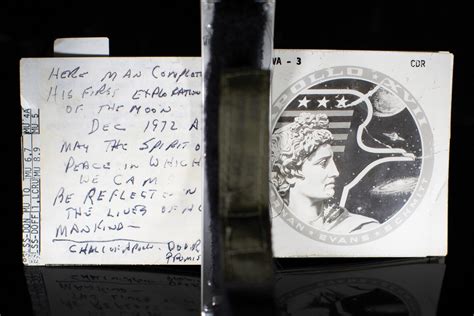 HERE MAN COMPLET
HIS FIRST EXPLORATION
OF THE MOON
DEC 1972 A
MAY THE SPIRIT O
PEACE IN WHICH
WE CAM
BE REFLECTE IN
THE LIVES OF
MANKIND
CHALLENGE
MU 4A
MU 5
MU 6,7
MU 8,9
MU 10
VA - 3
CDR
APOLLO XVII
NAN
EVANS
SCHMITT